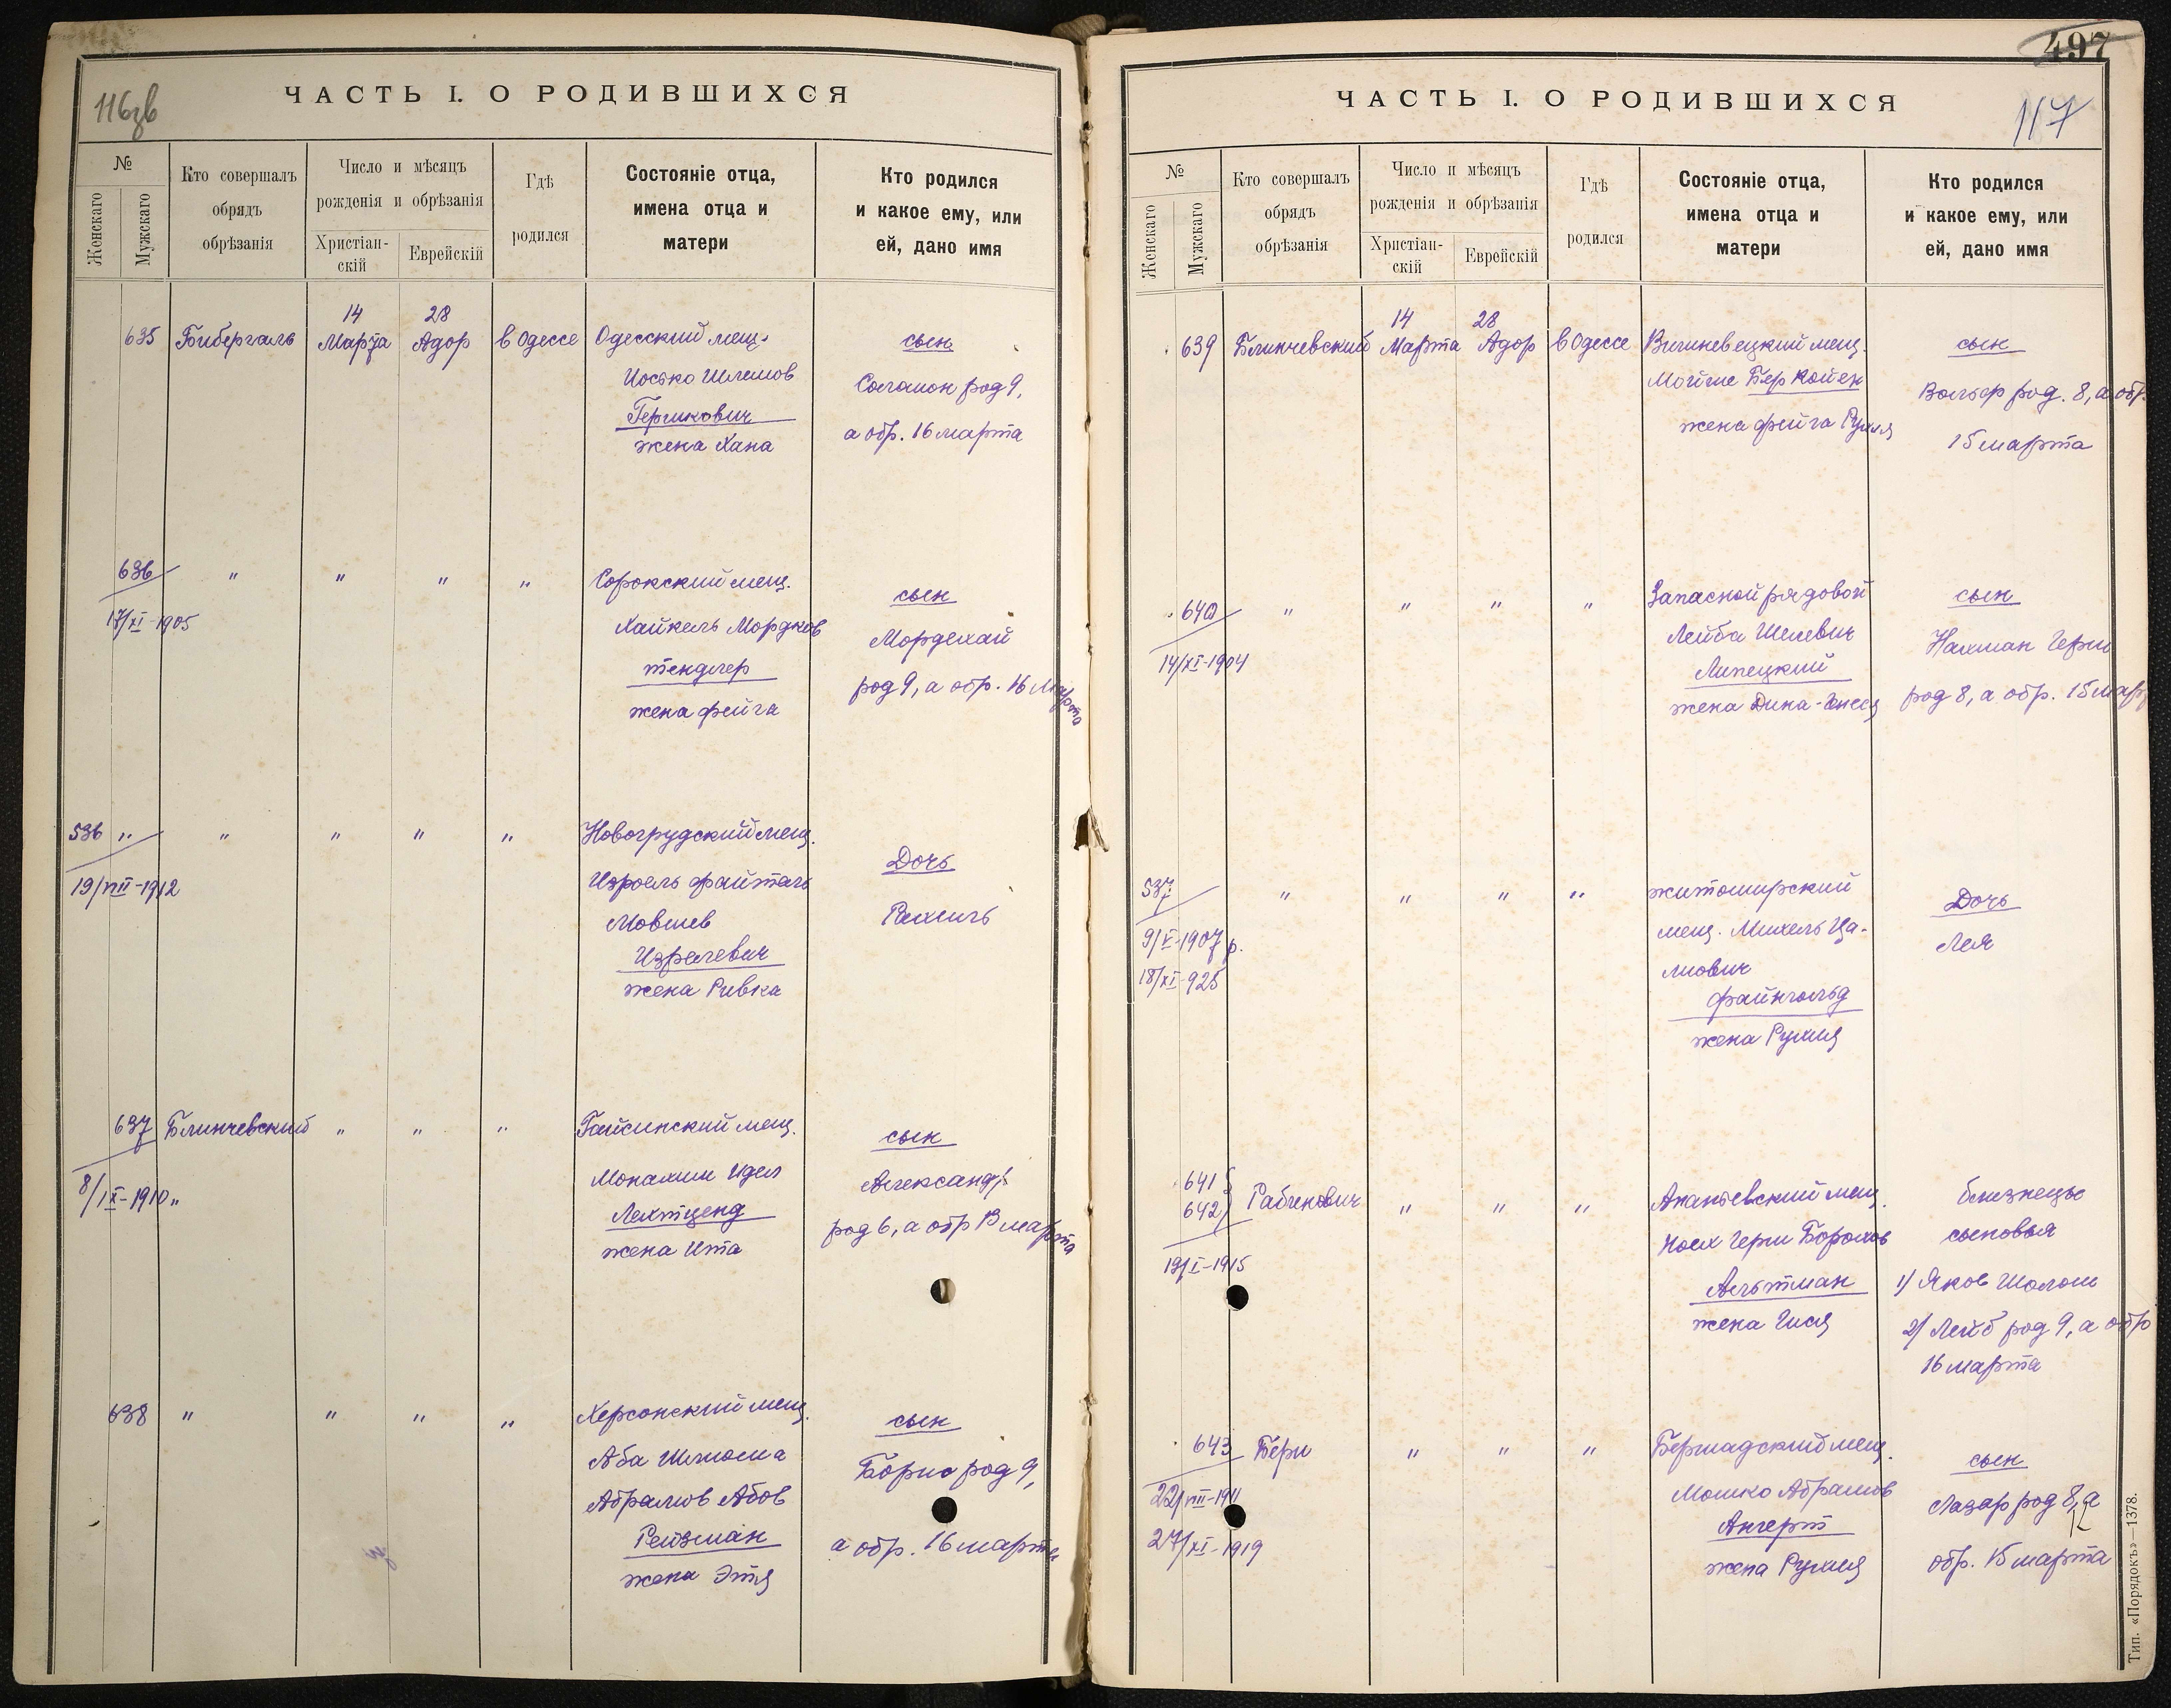 116зв
ЧАСТЬ I. О РОДИВШИХСЯ
№
Женскаго
Мужскаго
Кто совершалъ
обрядъ
обрѣзанія
Число и мѣсяцъ
рожденія и обрѣзанія
Христіан-
скій
Еврейскій
Гдѣ
родился
Состояніе отца,
имена отца и
матери
Кто родился
и какое ему, или
ей, дано имя
635 Бибергаль 14 Марта 28 Адор в Одессе Одесский мещ.
Иосько Шлемов
Гершкович
жена Хана
сын
Соломон род 9,
а обр. 16 марта
636 " " " "
17/XI-1905
Сорокский мещ.
Хайкель Мордков
Тендлер
жена Фейга
сын
Мордехай
род 9, а обр. 16 Марта
536 " " " " "
19/VIII-1912
Новогрудский мещ.
Изроель Файтель
Мовшев
Изралевич
жена Ривка
Дочь
Рахиль
637 Блинчевский " " "
8/IX-1910 "
Гайсинский мещ.
Монахим Идел
Лехтценд
жена Ита
сын
Александр
род 6, а обр 13 марта
638 " " " "
Херсонский мещ.
Аба Шлиома
Абрамов Абов
Рейзман
жена Этя
сын
Борис род 9,
а обр. 16 марта
497
117
ЧАСТЬ I. О РОДИВШИХСЯ
№
Женскаго
Мужскаго
Кто совершалъ
обрядъ
обрѣзанія
Число и мѣсяцъ
рожденія и обрѣзанія
Христіан-
скій
Еврейскій
Гдѣ
родился
Состояніе отца,
имена отца и
матери
Кто родился
и какое ему, или
ей, дано имя
639 Блинчевский 14 Марта 28 Адор в Одессе Вишневецкий мещ.
Мойше Бер Койен
жена Фейга Рухля
сын
Вольф род. 8, а обр.
15 марта
640 " " " "
14/XI-1904
Запасной рядовой
Лейба
Липецкий
жена Дина-
сын
Нахман Герш
род 8, а обр. 15 мар
537 " " " "
9/V-1907 р.
18/XI-925
житомирский
мещ. Михель Ца-
лиович
Файнгольд
жена Рухля
Дочь
Лея
641
642 Рабинович " " "
19/I-1915
Ананьевский мещ.
Ноех Герш Борохов
Альтман
жена Гися
близнецы
сыновья
1) Яков Шолом
2) Лейб род 9, а обр
16 марта
643 Берш " " "
22/VII-1911
27/XI-1919
Бершадский мещ.
Мошко Абрамов
Ангерт
жена Рухля
сын
Лазар род 8, а
обр. 15 марта
Тип. «Порядокъ»—1378.